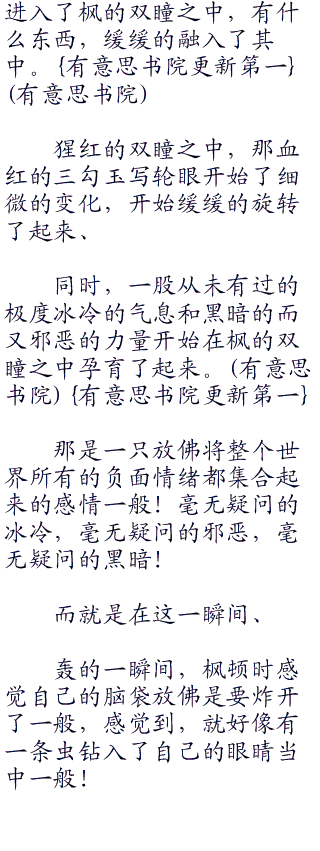 进入了枫的双瞳之中，有什
么东西，缓缓的融入了其
中。{有意思书院更新第一}
(有意思书院)
猩红的双瞳之中，那血
红的三勾玉写轮眼开始了细
微的变化，开始缓缓的旋转
了起来、
同时，一股从未有过的
极度冰冷的气息和黑暗的而
又邪恶的力量开始在枫的双
瞳之中孕育了起来。(有意思
书院) {有意思书院更新第一}
那是一只放佛将整个世
界所有的负面情绪都集合起
来的感情一般！毫无疑问的
冰冷，毫无疑问的邪恶，毫
无疑问的黑暗！
而就是在这一瞬间、
轰的一瞬间，枫顿时感
觉自己的脑袋放佛是要炸开
了一般，感觉到，就好像有
一条虫钻入了自己的眼睛当
中一般！